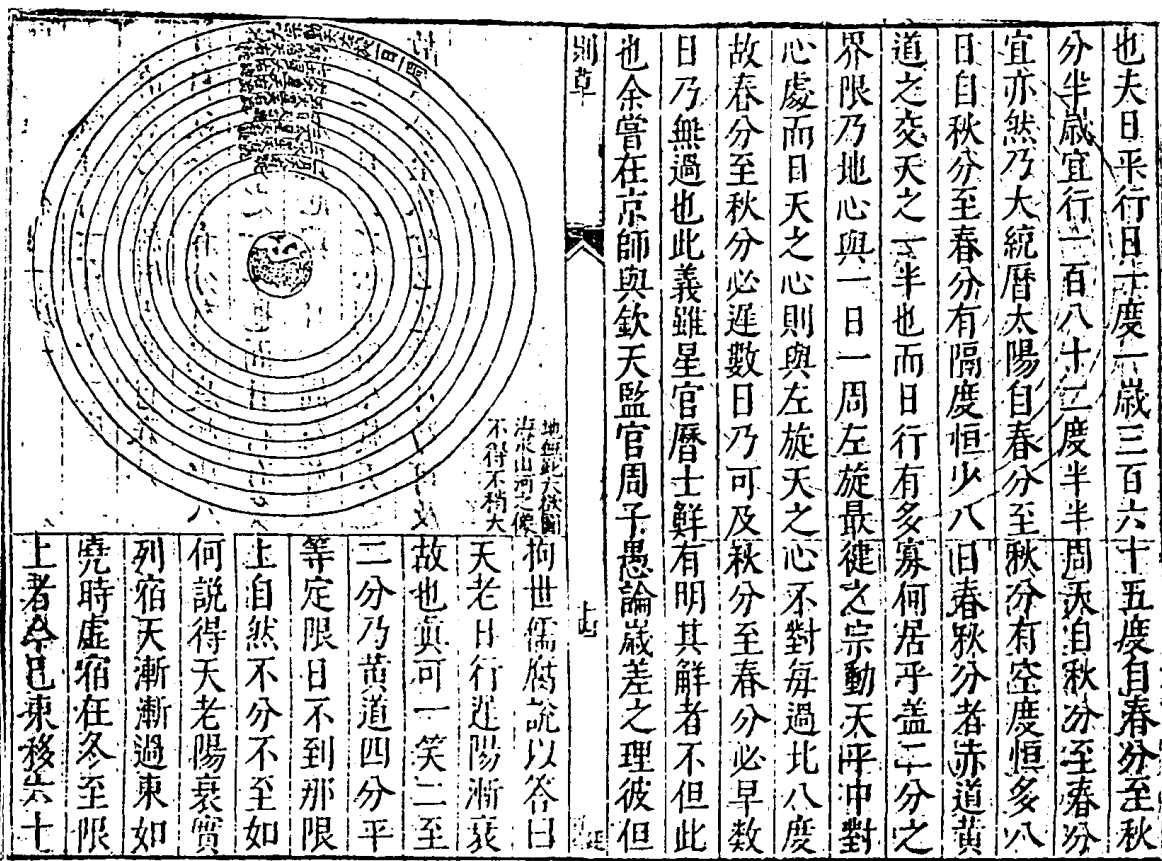 也夫日平行日一度一歲三百六十五度自春分至秋
分半歲宜行一百八十二度半半周天自秋分至春分
宜亦然乃大統曆太陽自春分至秋分有空度恒多八
日自秋分至春分有隔度恒少八日春秋分者赤道黃
道之交天之一半也而日行有多寡何居乎盖二分之
界限乃地心與一日一周左旋最徤之宗動天平冲對
心處而日天之心則與左旋天之心不對每過北八度
故春分至秋分必遲數日乃可及秋分至春分必早数
日乃無過也此義雖星官曆士鮮有明其解者不但此
也余嘗在京師與欽天監官周子愚論歲差之理彼但
則草
地無此大欲圖
海水山河之像
不得不稍大
拘世儒腐說以答曰
天老日行遲陽漸衰
故也眞可一笑二至
二分乃黃道四分平
等定限日不到那限
上自然不分不至如
何說得天老陽衰實
列宿天漸漸過東如
堯時虛宿在冬至限
上者今已東移六十